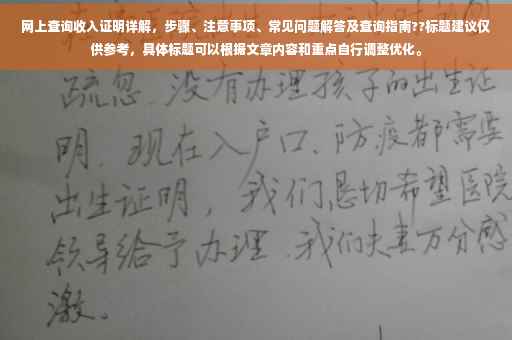 网上查询收入证明详解，步骤、注意事项、常见问题解答及查询指南??标题建议仅
供参考，具体标题可以根据文章内容和重点自行调整优化。
疏忽．没有办理孩子的出生证
明．现在入户口、防疫都需要
出生证明，我们恳切希望医院
领导给予办理．我们夫妻万分感
激．